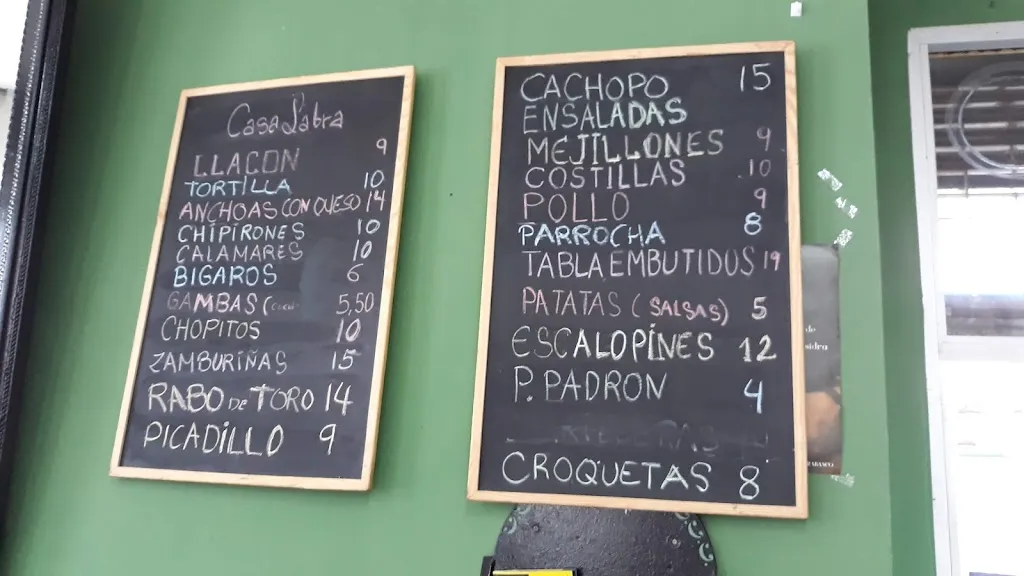 Casa Labra
LLACON 9
TORTILLA 10
ANCHOAS CON QUESO 14
CHIPIRONES 10
CALAMARES 10
BIGAROS 6
GAMBAS ( 5,50
CHOPITOS 10
ZAMBURIÑAS 15
RABO DE TORO 14
PICADILLO 9
CACHOPO 15
ENSALADAS
MEJILLONES 9
COSTILLAS .10
POLLO 9
PARROCHA 8
TABLA EMBUTIDOS 19
PATATAS (SALSAS) 5
ESCALOPINES 12
P. PADRON 4
CROQUETAS 8
de